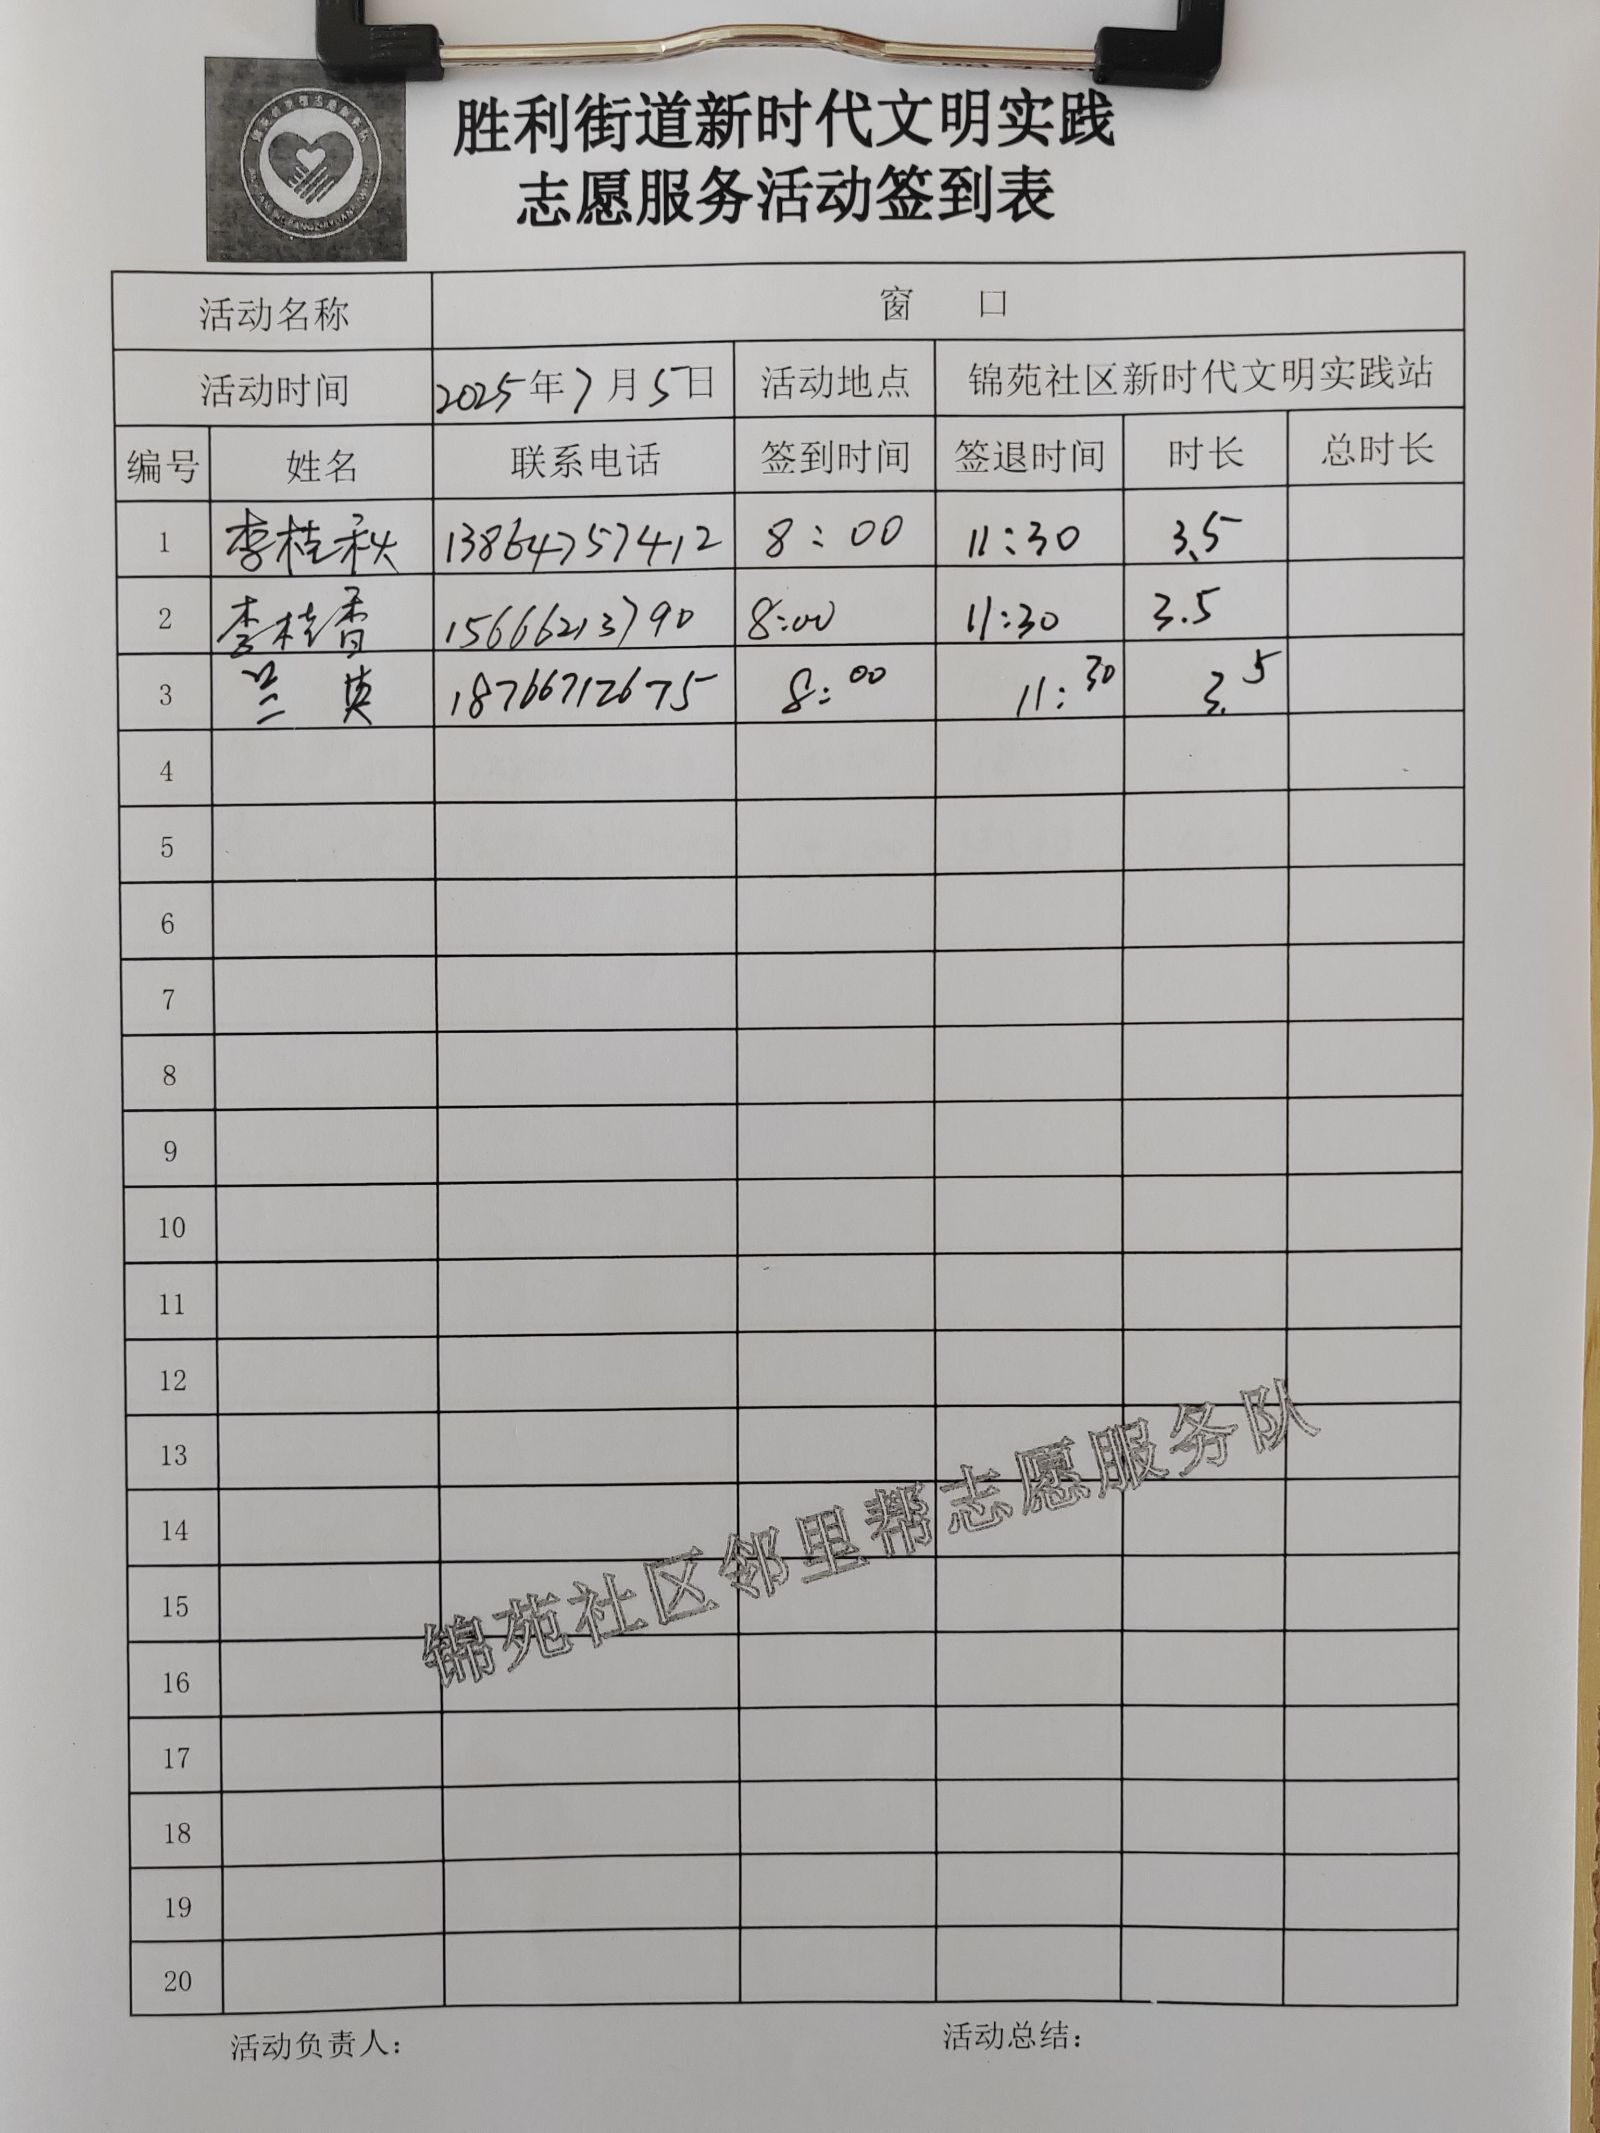 胜利街道新时代文明实践
志愿服务活动签到表
活动名称 窗 口
活动时间 2025年7月5日 活动地点 锦苑社区新时代文明实践站
编号 姓名 联系电话 签到时间 签退时间 时长 总时长
1 李桂秋 13864757412 8:00 11:30 3.5
2 李桂香 15666213790 8:00 11:30 3.5
3 兰英 18766712675 8:00 11:30 3.5
4
5
6
7
8
9
10
11
12
13
14
15
16
17
18
19
20
锦苑社区邻里帮志愿服务队
活动负责人: 活动总结: